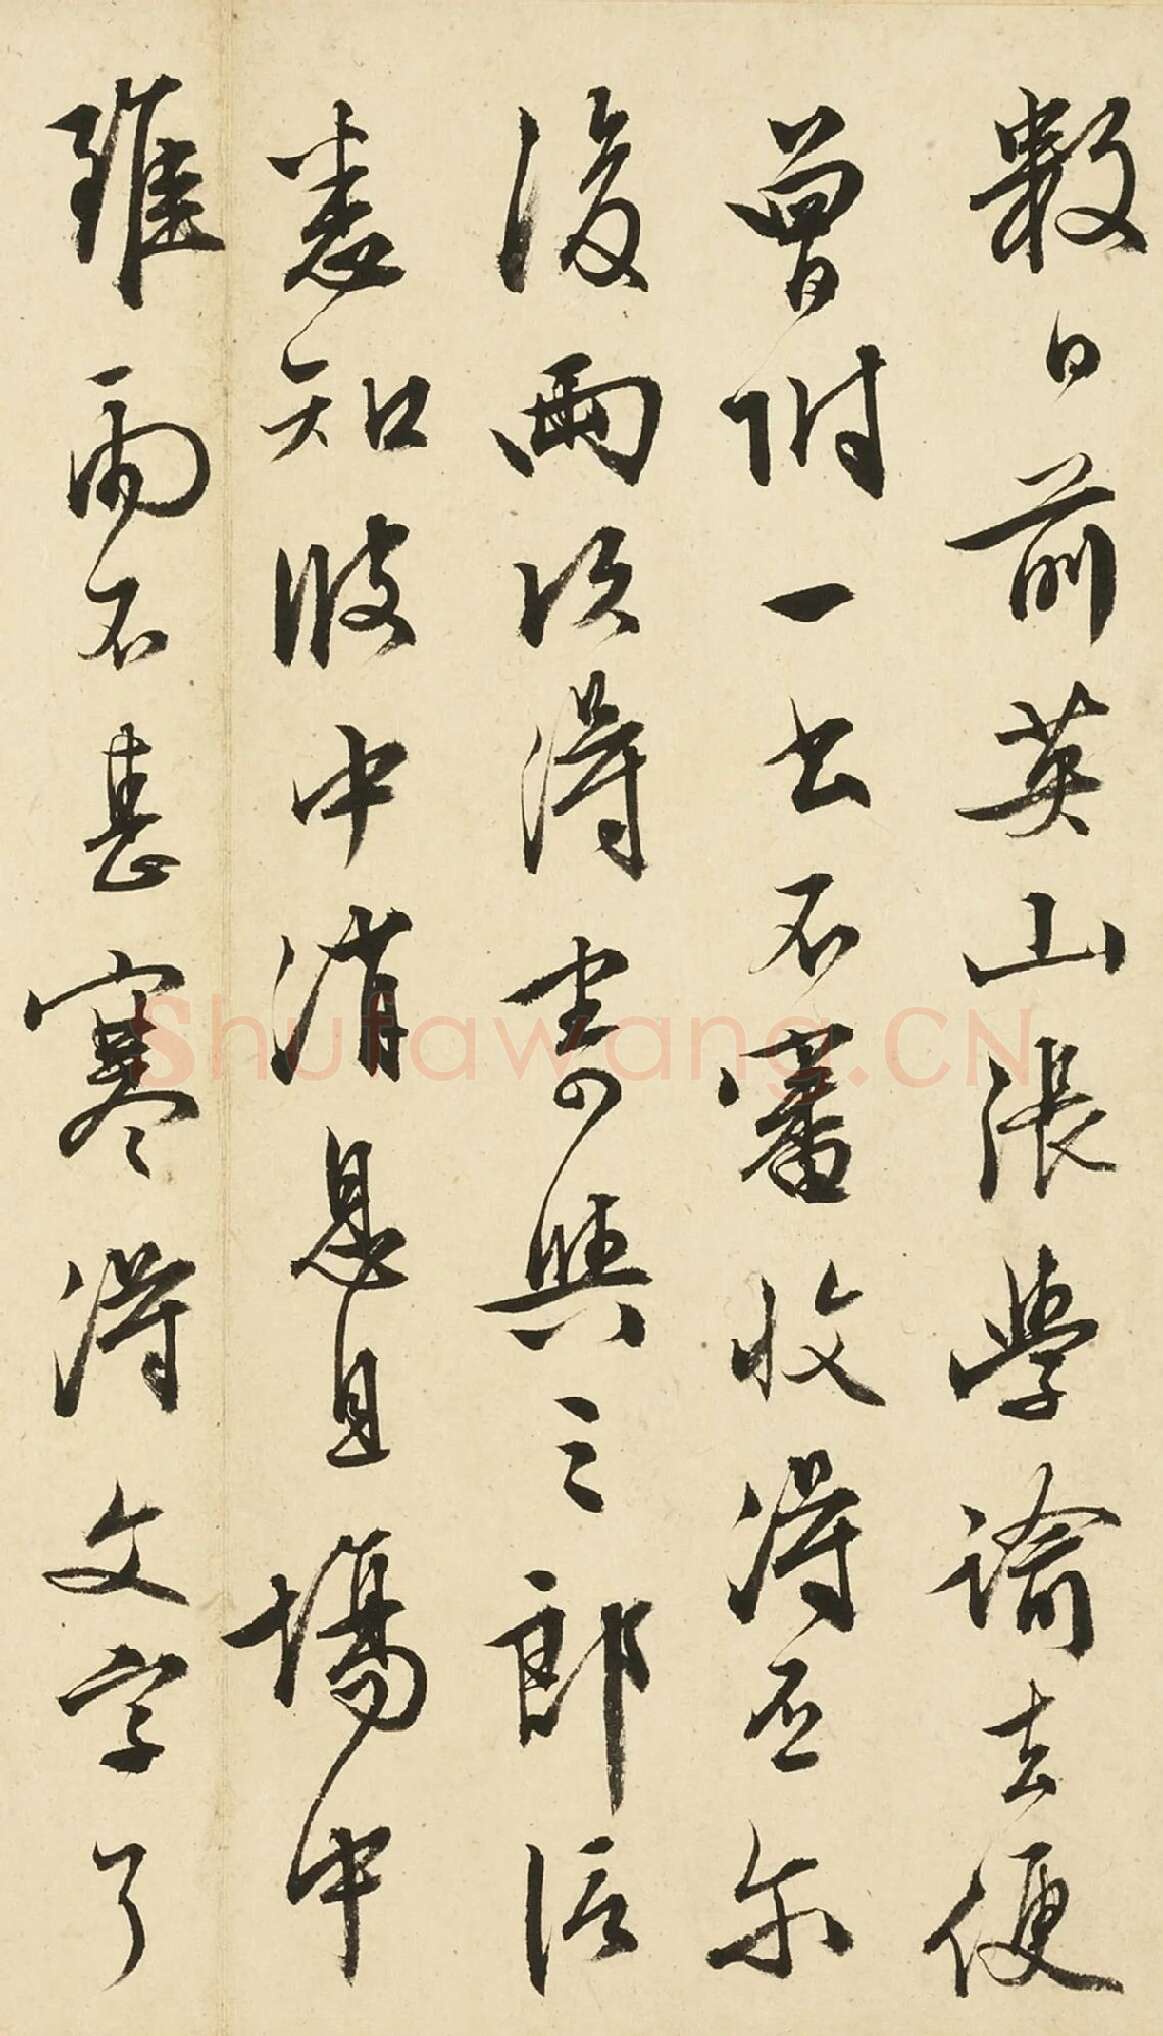 數日前英山張學諭去便
曾附一書不審收得否尔
後兩次得書與三郎信
悉知彼中消息且場中
雖雨不甚寒得文字了
Shufawang.CN